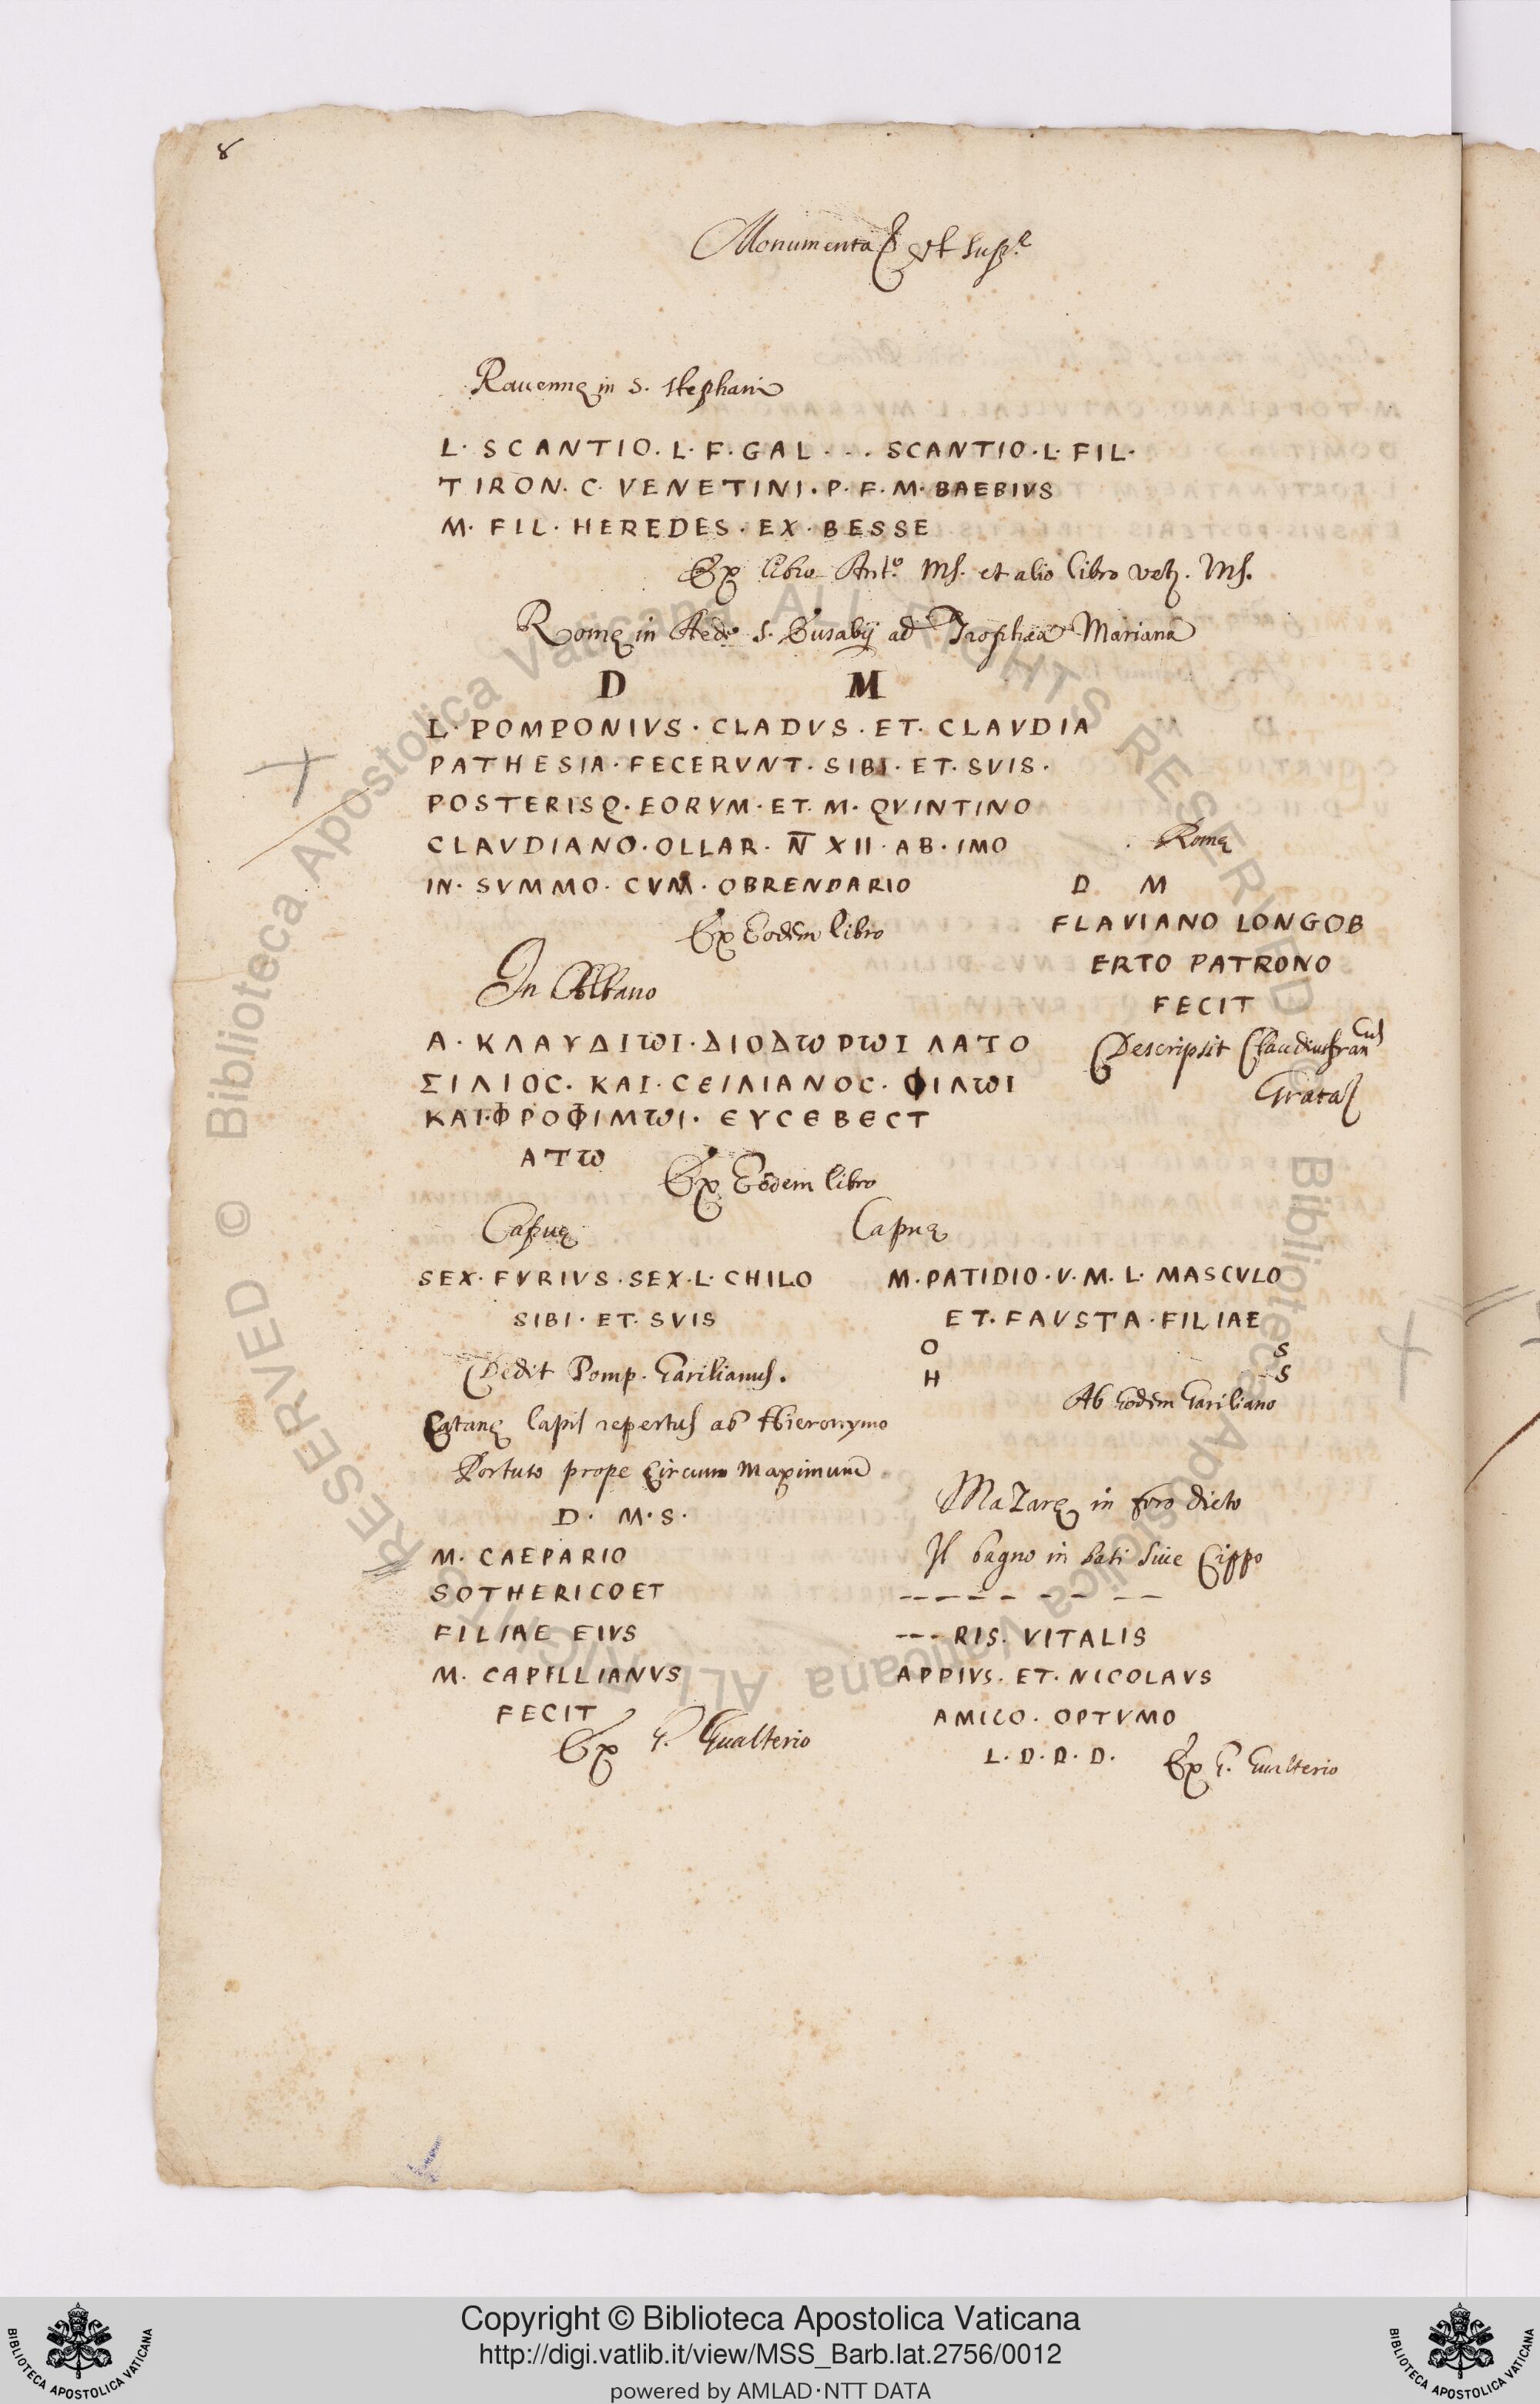 8
Monumenta & ut sup.ª
Rauennę in S. Stephani
L. SCANTIO. L. F. GAL . . . SCANTIO. L. FIL.
TIRON. C. VENETINI. P. F. M. BAEBIVS
M. FIL. HEREDES. EX. BESSE
Ex libro Ant.º Ms. et alio libro vet. Ms.
Romę in Aede S. Eusebij ad Trophaea Mariana
D M
L. POMPONIVS. CLADVS. ET. CLAVDIA
PATHESIA. FECERVNT. SIBI. ET. SVIS.
POSTERISQ. EORVM. ET. M. QVINTINO
CLAVDIANO. OLLAR. N̅ XII. AB. IMO
IN. SVMMO. CVM. OBRENDARIO
Ex Eodem libro
Romę
D M
FLAVIANO LONGOB
ERTO PATRONO
FECIT
Descripsit Claudius Fran
cus
In Albano
Α. ΚΛΑΥΔΙωΙ. ΔΙΟΔωΡωΙ ΛΑΤΟ
ΣΙΛΙΟC. ΚΑΙ. CΕΙΛΙΑΝΟC. ΦΙΛωΙ
ΚΑΙ. ΦΡΟΦΙΜωΙ. ΕΥCΕΒΕCΤ
ΑΤω
Ex Eodem libro
Capuę
SEX. FVRIVS. SEX. L. CHILO
SIBI. ET. SVIS
Dedit Pomp. Garilianus.
Capuę
M. PATIDIO. V. M. L. MASCVLO
ET. FAVSTA. FILIAE
O S
H S
Ab Eodem Gariliano
Catanę lapis repertus ab Hieronymo
Portuto prope Circum Maximum
D. M. S.
M. CAEPARIO
SOTHERICO ET
FILIAE EIVS
M. CAPILLIANVS
FECIT
Ex G. Gualterio
Mazarę in foro dicto
Il bagno in basi siue Cippo
--- RIS. VITALIS
APPIVS. ET. NICOLAVS
AMICO. OPTVMO
L. D. D. D.
Ex G. Gualterio
Biblioteca Apostolica Vaticana ALL RIGHTS RESERVED © Biblioteca Apostolica Vaticana ALL RIGHTS RESERVED ©
BIBLIOTECA APOSTOLICA VATICANA
Copyright © Biblioteca Apostolica Vaticana
http://digi.vatlib.it/view/MSS_Barb.lat.2756/0012
powered by AMLAD·NTT DATA
BIBLIOTECA APOSTOLICA VATICANA